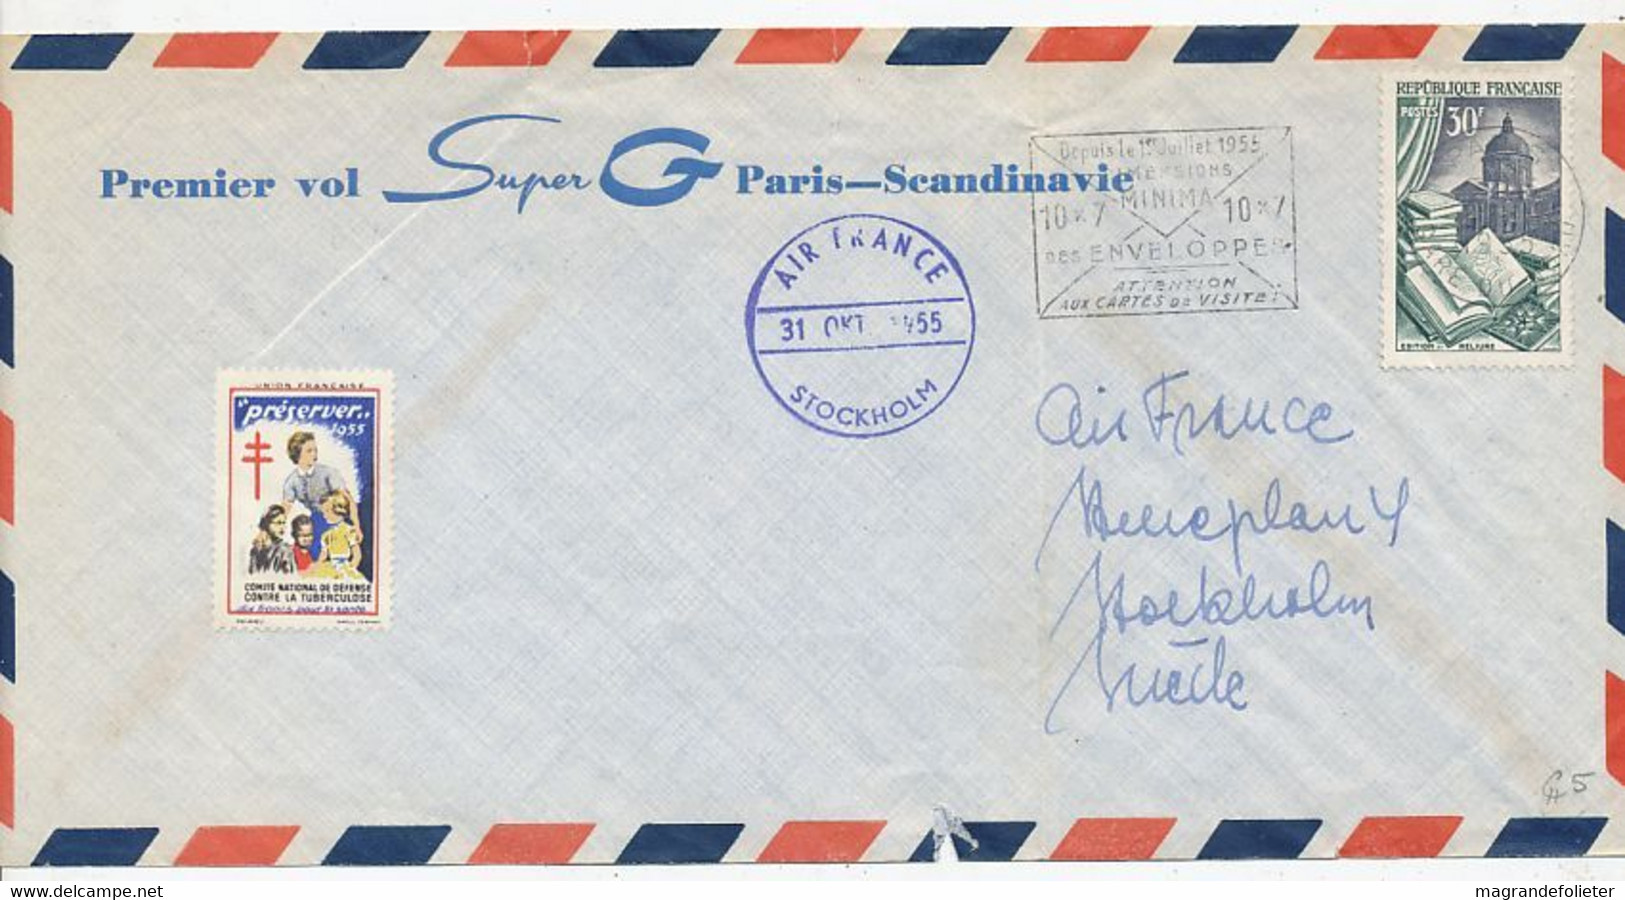 Premier vol Super G Paris—Scandinavie
Depuis le 1er Juillet 1955
DIMENSIONS
MINIMA
10 x 7 10 x 7
DES ENVELOPPES
ATTENTION
AUX CARTES DE VISITE!
RÉPUBLIQUE FRANÇAISE
POSTES 30F
EDITION RELIURE
AIR FRANCE
31 OKT 1955
STOCKHOLM
UNION FRANÇAISE
"préserver..
1955
COMITÉ NATIONAL DE DÉFENSE
CONTRE LA TUBERCULOSE
dix francs pour la santé
Air France
4
Stockholm
Suède
5
delcampe.net
magrandefolieter